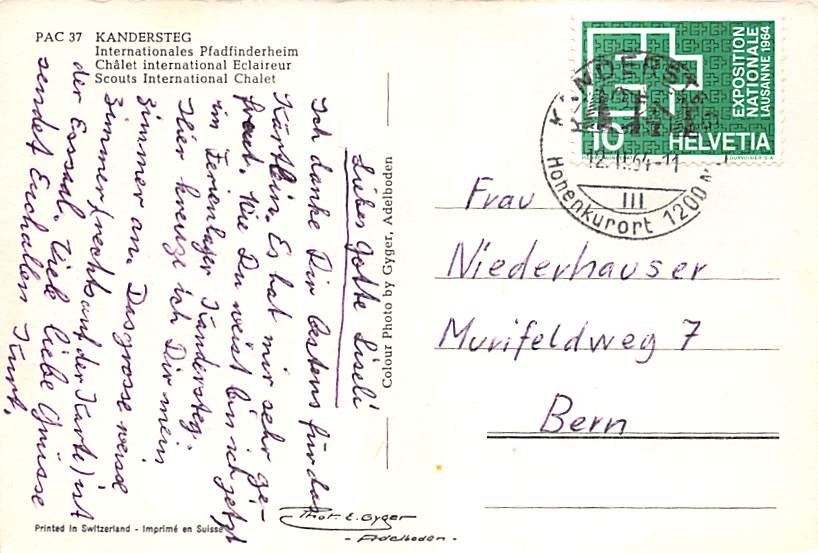 PAC 37 KANDERSTEG
Internationales Pfadfinderheim
Châlet international Eclaireur
Scouts International Chalet
Liebes Gotte Liseli
Ich danke Dir bestens für das
Kärtlein. Es hat mir sehr ge-
freut. Wie Du weist bin ich jetzt
im Ferienlager Kandersteg.
Hier kreuze ich Dir mein
Zimmer an. Das grosse weisse
Zimmer (rechts auf der Karte) ist
der Esssaal. Viele liebe Grüsse
sendet Euch allen Kurt.
Colour Photo by Gyger, Adelboden
EXPOSITION
NATIONALE
LAUSANNE 1964
10 HELVETIA
KANDERSTEG
64-11
III
Höhenkurort 1200 M
Frau
Niederhauser
Murifeldweg 7
Bern
Printed in Switzerland - Imprimé en Suisse
Phot. E. Gyger
- Adelboden -